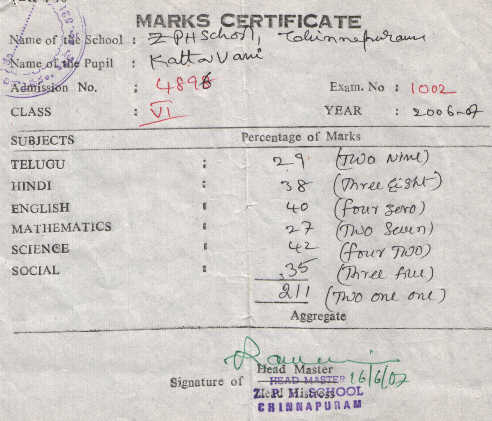 MARKS CERTIFICATE
Name of the School : Z P H School, Chinnapuram
Name of the Pupil : Katta Vani
Admission No. : 4898 Exam. No : 1002
CLASS : VI YEAR : 2006-07
SUBJECTS Percentage of Marks
TELUGU : 29 (Two Nine)
HINDI : 38 (Three Eight)
ENGLISH 40 (four zero)
MATHEMATICS : 27 (Two Seven)
SCIENCE : 42 (four Two)
SOCIAL : 35 (Three five)
211 (Two one one)
Aggregate
Head Master
Signature of HEAD MASTER 16/6/07
Head Mistress
Z.P. H. SCHOOL
CHINNAPURAM